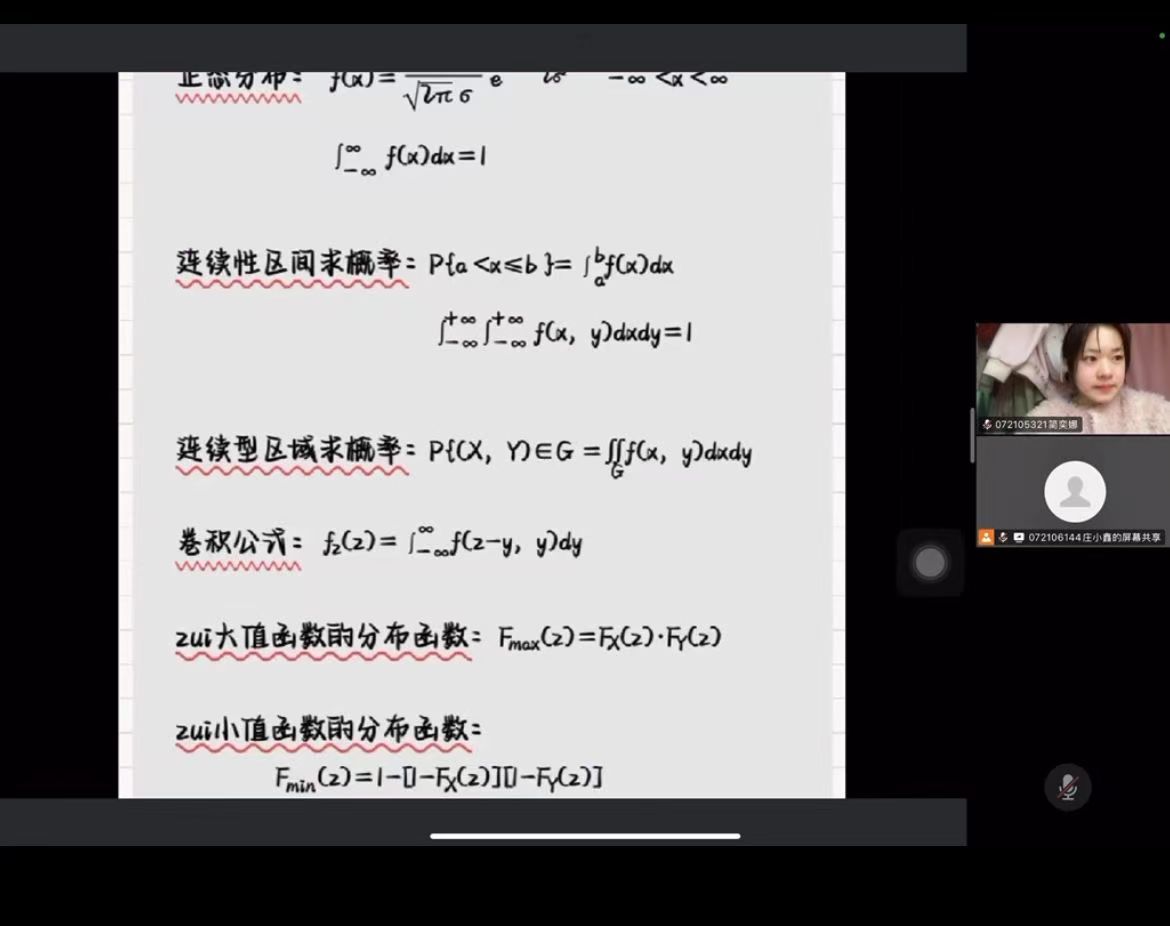 正态分布: f(x)=1/√2π σ e 2σ -∞ <x <∞
∫_{-∞}^{∞} f(x)dx=1
连续性区间求概率: P{a <x≤b }= ∫_a^b f(x)dx
∫_{-∞}^{+∞} ∫_{-∞}^{+∞} f(x, y)dxdy=1
连续型区域求概率: P{(X, Y)∈G =∬_G f(x, y)dxdy
卷积公式: f_z(z)= ∫_{-∞}^{∞} f(z-y, y)dy
zui大值函数的分布函数: F_max(z)=F_X(z)·F_Y(z)
zui小值函数的分布函数:
F_min(z)=1-[1-F_X(z)][1-F_Y(z)]
072105321简奕娜
072106144庄小鑫的屏幕共享